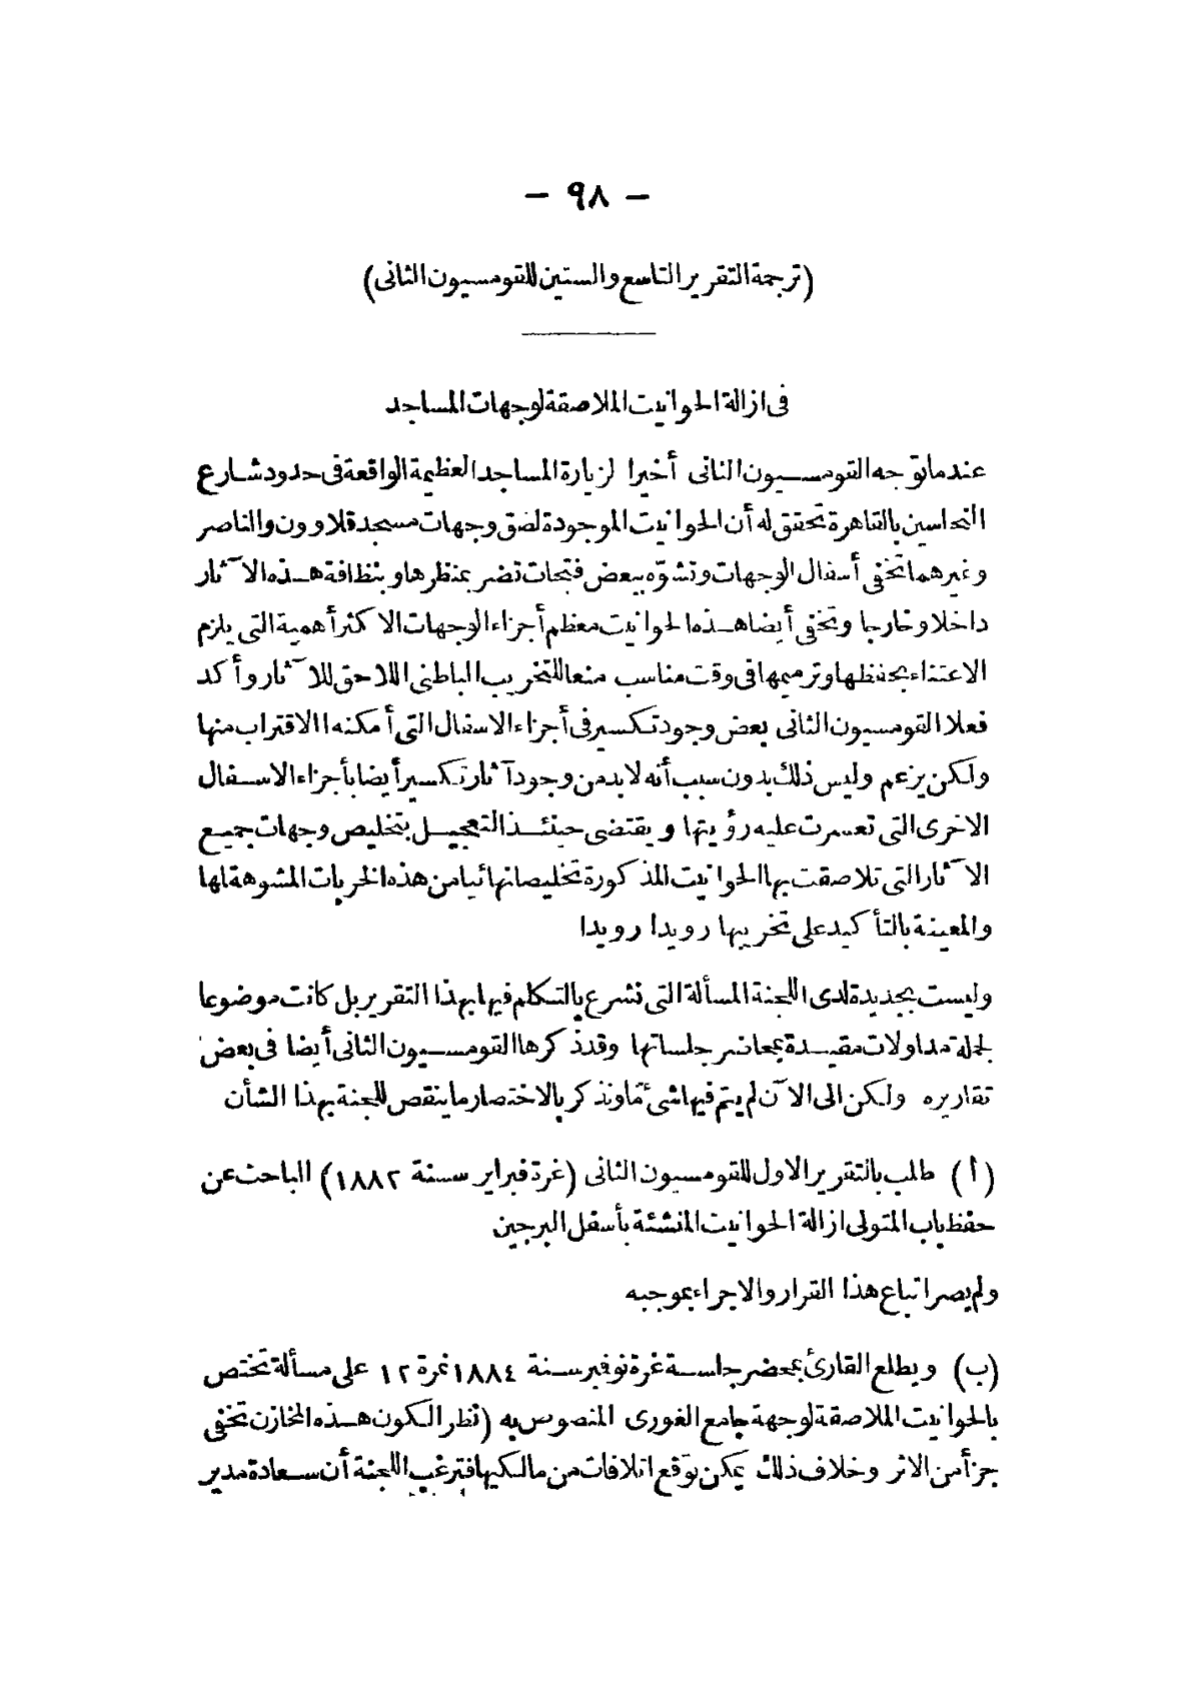 — ٩٨ —
(ترجمة التقرير التاسع والستين للقومسيون الثانى)
فى ازالة الحوانيت الملاصقة لوجهات المساجد
عند ما توجه القومسيون الثانى أخيرا لزيارة المساجد العظيمة الواقعة فى حدود شارع
النحاسين بالقاهرة تحقق له أن الحوانيت الموجودة لصق وجهات مسجد قلاوون والناصر
وغيرهما تخفى أسفال الوجهات وتشوّه ببعض فتحات تضر بمنظرها وبنظافة هذه الآثار
داخلا وخارجا وتخفى أيضا هذه الحوانيت معظم أجزاء الوجهات الاكثر أهمية التى يلزم
الاعتناء بحفظها وترميمها فى وقت مناسب منعا للتخريب الباطنى اللاحق للآثار وأكد
فعلا القومسيون الثانى بعض وجود تكسير فى أجزاء الاسفال التى أمكنه الاقتراب منها
ولكن يزعم وليس ذلك بدون سبب أنه لابد من وجود آثار تكسير أيضا بأجزاء الاسفال
الاخرى التى تعسرت عليه رؤيتها ويقتضى حينئذ التعجيل بتخليص وجهات جميع
الآثار التى تلاصقت بها الحوانيت المذكورة تخليصا نهائيا من هذه الخربات المشوهة لها
والمعينة بالتأكيد على تخريبها رويدا رويدا
وليست بجديدة لدى اللجنة المسألة التى نشرع بالتكلم فيها بهذا التقرير بل كانت موضوعا
لجملة مداولات مقيدة بمحاضر جلساتها وقد ذكرها القومسيون الثانى أيضا فى بعض
تقاريره ولكن الى الآن لم يتم فيها شىء مّا ونذكر بالاختصار ما ينقص للجنة بهذا الشأن
(أ) طلب بالتقرير الاول للقومسيون الثانى (غرة فبراير سنة ١٨٨٢) الباحث عن
حفظ باب المتولى ازالة الحوانيت المنشئة بأسفل البرجين
ولم يصر اتباع هذا القرار والاجراء بموجبه
(ب) ويطلع القارئ بمحضر جلسة غرة نوفبر سنة ١٨٨٤ نمرة ١٢ على مسألة تختص
بالحوانيت الملاصقة لوجهة جامع الغورى المنصوص به (نظر الكون هذه المخازن تخفى
جزأ من الاثر وخلاف ذلك يمكن توقع اتلافات من مالكيها فترغب اللجنة أن سعادة مدير